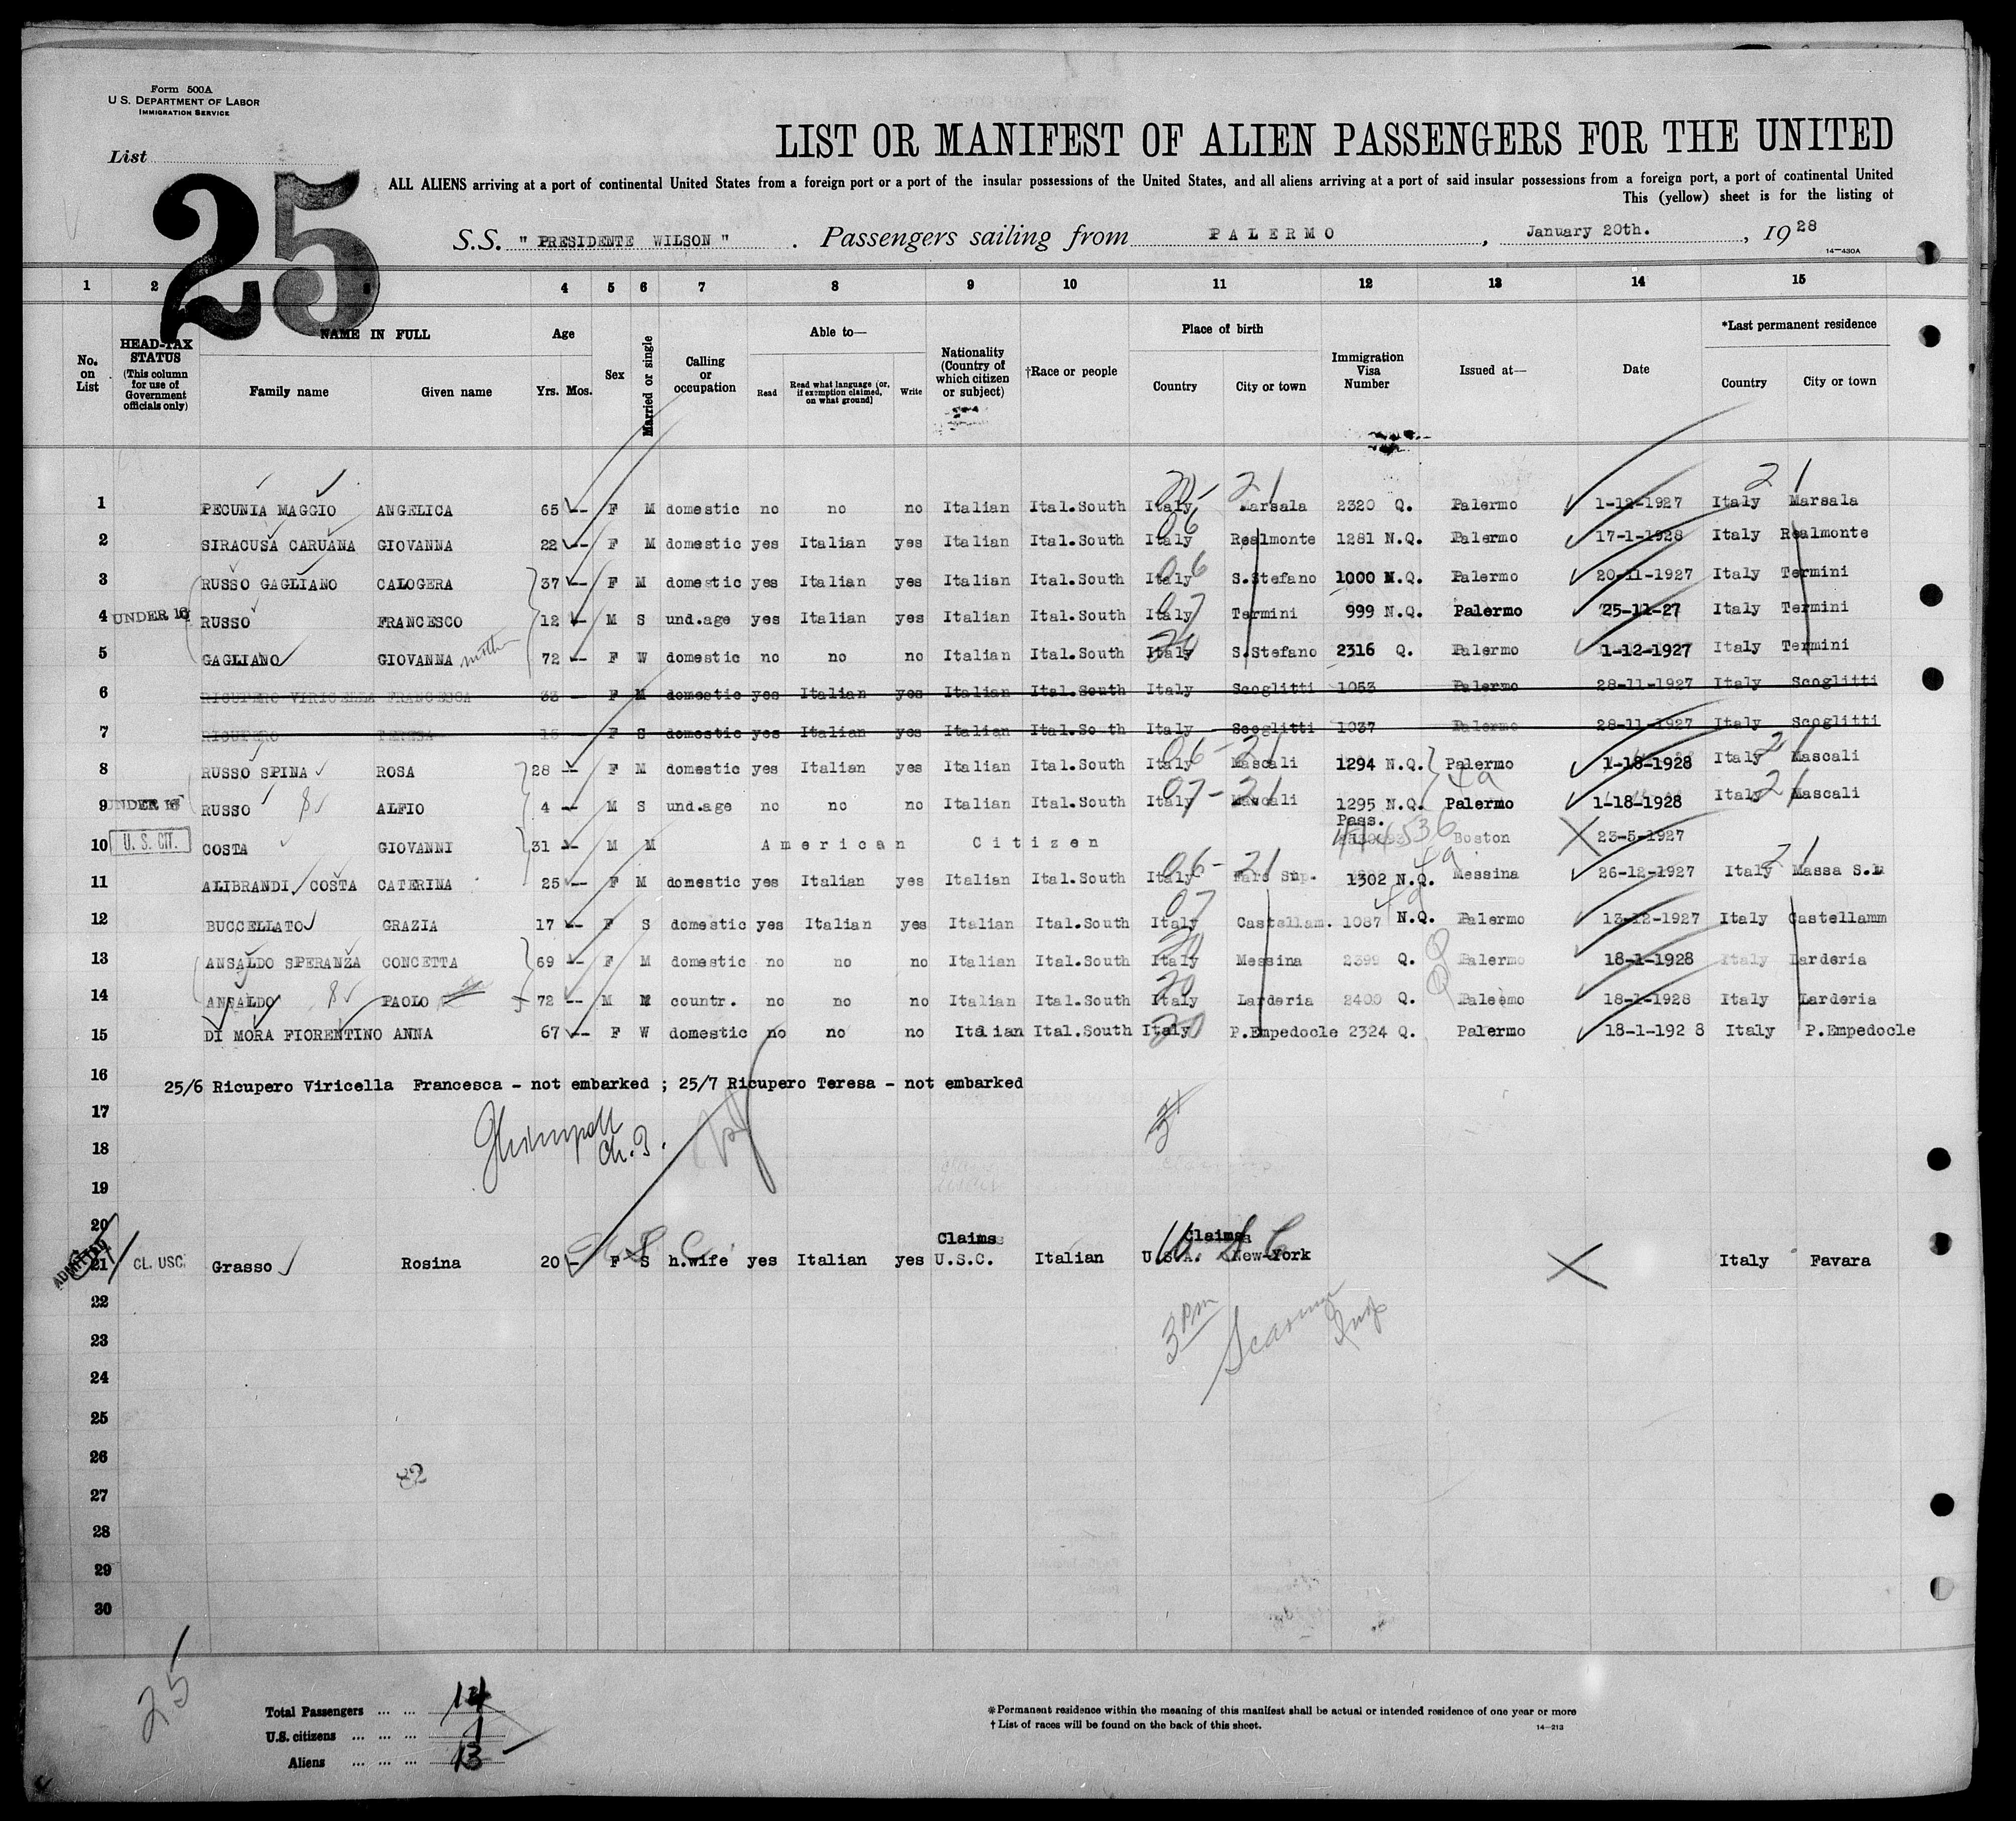 Form 500A
U.S. DEPARTMENT OF LABOR
IMMIGRATION SERVICE
List
25
LIST OR MANIFEST OF ALIEN PASSENGERS FOR THE UNITED
ALL ALIENS arriving at a port of continental United States from a foreign port or a port of the insular possessions of the United States, and all aliens arriving at a port of said insular possessions from a foreign port, a port of continental United
This (yellow) sheet is for the listing of
S.S. " PRESIDENTE WILSON " . Passengers sailing from PALERMO , January 20th. , 1928
14—430A
1 2 3 4 5 6 7 8 9 10 11 12 13 14 15
No. on List
HEAD-TAX STATUS (This column for use of Government officials only)
NAME IN FULL Family name Given name
Age Yrs. Mos.
Sex
Married or single
Calling or occupation
Able to— Read Read what language (or, if exemption claimed, on what ground) Write
Nationality (Country of which citizen or subject)
†Race or people
Place of birth Country City or town
Immigration Visa Number
Issued at—
Date
*Last permanent residence Country City or town
1 PECUNIA MAGGIO ANGELICA 65 -- F M domestic no no no Italian Ital.South Italy Marsala 2320 Q. Palermo 1-12-1927 Italy Marsala
2 SIRACUSA CARUANA GIOVANNA 22 -- F M domestic yes Italian yes Italian Ital.South Italy Realmonte 1281 N.Q. Palermo 17-1-1928 Italy Realmonte
3 RUSSO GAGLIANO CALOGERA 37 -- F M domestic yes Italian yes Italian Ital.South Italy S.Stefano 1000 N.Q. Palermo 20-11-1927 Italy Termini
4 UNDER 16 RUSSO FRANCESCO 12 -- M S und.age yes Italian yes Italian Ital.South Italy Termini 999 N.Q. Palermo 25-11-27 Italy Termini
5 GAGLIANO GIOVANNA 72 -- F W domestic no no no Italian Ital.South Italy S.Stefano 2316 Q. Palermo 1-12-1927 Italy Termini
6 RICUPERO VIRICELLA FRANCESCA 33 -- F M domestic yes Italian yes Italian Ital.South Italy Scoglitti 1053 Palermo 28-11-1927 Italy Scoglitti
7 RICUPERO TERESA F S domestic yes Italian yes Italian Ital.South Italy Scoglitti 1037 Palermo 28-11-1927 Italy Scoglitti
8 RUSSO SPINA ROSA 28 -- F M domestic yes Italian yes Italian Ital.South Italy Mascali 1294 N.Q. Palermo 1-18-1928 Italy Mascali
9 UNDER 16 RUSSO ALFIO 4 -- M S und.age no no no Italian Ital.South Italy Mascali 1295 N.Q. Palermo 1-18-1928 Italy Mascali
Pass.
10 U. S. CIT. COSTA GIOVANNI 31 -- M M American Citizen Boston 23-5-1927
11 ALIBRANDI COSTA CATERINA 25 -- F M domestic yes Italian yes Italian Ital.South Italy Faro Sup. 1302 N.Q. Messina 26-12-1927 Italy Massa S.
12 BUCCELLATO GRAZIA 17 -- F S domestic yes Italian yes Italian Ital.South Italy Castellam. 1087 N.Q. Palermo 13-12-1927 Italy Castellamm
13 ANSALDO SPERANZA CONCETTA 69 -- F M domestic no no no Italian Ital.South Italy Messina 2399 Q. Palermo 18-1-1928 Italy Larderia
14 ANSALDO PAOLO 72 -- M M countr. no no no Italian Ital.South Italy Larderia 2400 Q. Paleemo 18-1-1928 Italy Larderia
15 DI MORA FIORENTINO ANNA 67 -- F W domestic no no no Italian Ital.South Italy P.Empedocle 2324 Q. Palermo 18-1-192 8 Italy P.Empedocle
16
25/6 Ricupero Viricella Francesca - not embarked ; 25/7 Ricupero Teresa - not embarked
17
18
19
20
Claims Claims
21 ADMITTED CL. USC. Grasso Rosina 20 - F S h.wife yes Italian yes U.S.C. Italian U.S.A. New-York Italy Favara
22
3 PM
23
24
25
26
82
27
28
29
30
25
Total Passengers ... ... 14
U.S. citizens ... ... ... 1
Aliens ... ... ... 13
*Permanent residence within the meaning of this manifest shall be actual or intended residence of one year or more
†List of races will be found on the back of this sheet. 14—213